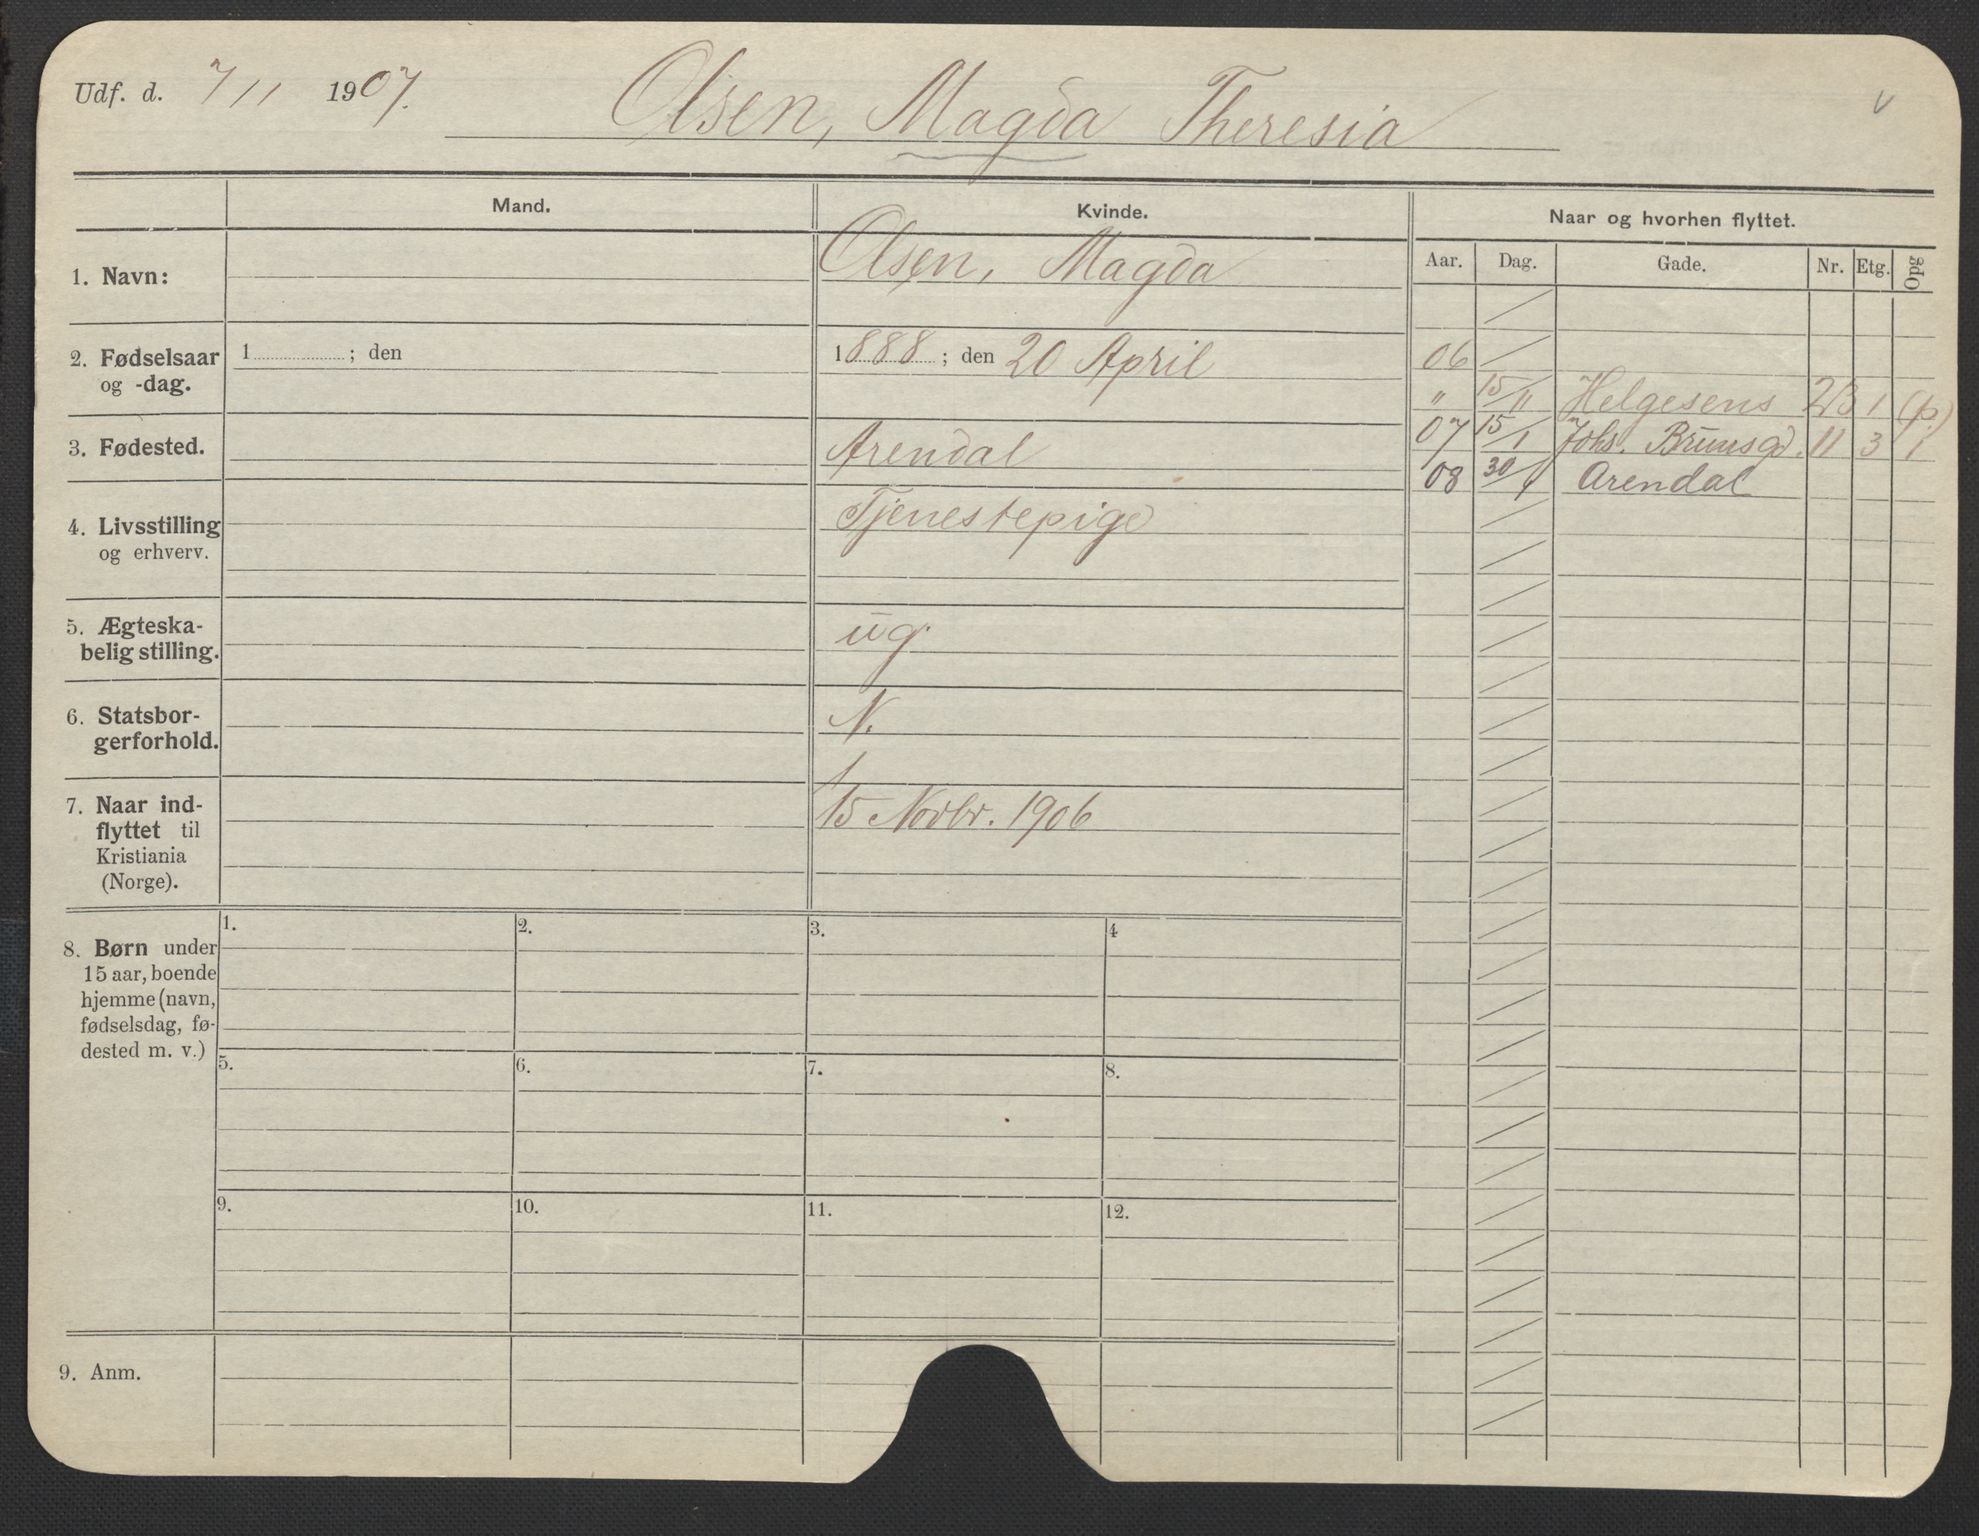 Udf. d. 7/11 1907. Olsen, Magda Theresia
Mand. Kvinde. Naar og hvorhen flyttet.
Aar. Dag. Gade. Nr. Etg. Opg
1. Navn: Olsen, Magda
2. Fødselsaar 1 ; den 1888 ; den 20 April
og -dag.
3. Fødested. Arendal
4. Livsstilling Tjenestepige
og erhverv.
5. Ægteska- ug.
belig stilling.
6. Statsbor- N.
gerforhold.
7. Naar ind- 15 Novbr. 1906
flyttet til
Kristiania
(Norge).
06
" 15/11 Helgesens 23 1 (p.)
07 15/1 Johs. Brunsgd. 11 3 1
08 30/ Arendal
8. Børn under 1. 2. 3. 4
15 aar, boende
hjemme (navn,
fødselsdag, fø-
dested m. v.)
5. 6. 7. 8.
9. 10. 11. 12.
9. Anm.